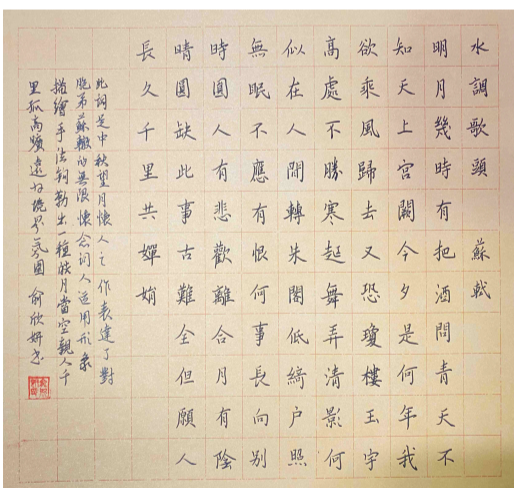 水調歌頭 蘇軾
明月幾時有把酒問青天不
知天上宮闕今夕是何年我
欲乘風歸去又恐瓊樓玉宇
高處不勝寒起舞弄清影何
似在人間轉朱閣低綺户照
無眠不應有恨何事長向别
時圓人有悲歡離合月有陰
晴圓缺此事古難全但願人
長久千里共嬋娟
此詞是中秋望月懷人之作表達了對
胞弟蘇轍的無限懷念詞人運用形象
描繪手法勾勒出一種皓月當空親人千
里孤高曠遠的境界氛圍 俞欣妍书